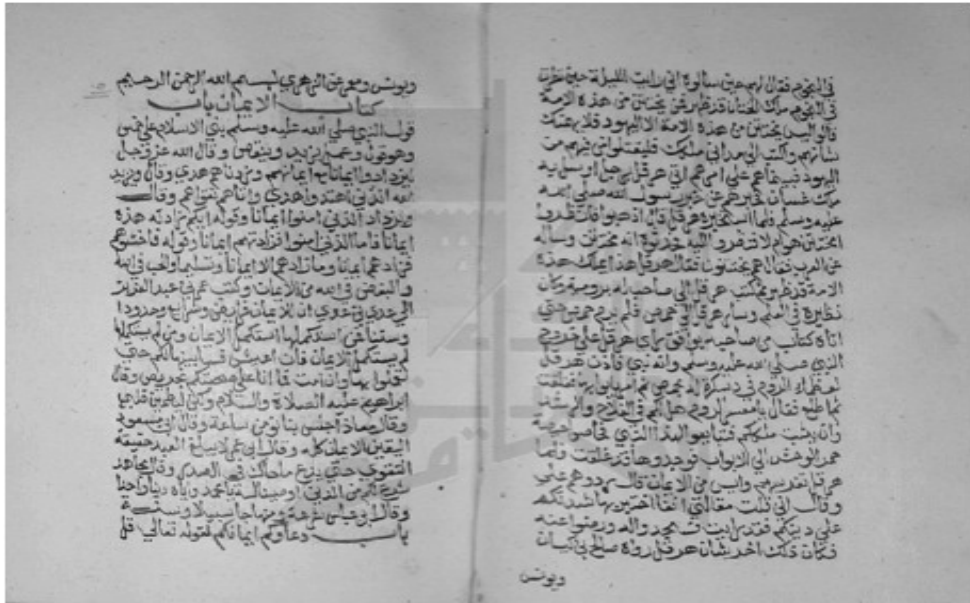 في النجوم فقال لهم حين سالوه اني رايت الليلة حين نظرت
في النجوم ملك الختان قد ظهر فمن يختتن من هذه الامة
قالوا ليس يختتن من هذه الامة الا اليهود فلا يهمنك
شانهم واكتب الى مداين ملكك فليقتلوا من فيهم من
اليهود فبينما هم على امرهم اتي هرقل برجل ارسل به
ملك غسان يخبرهم عن خبر رسول الله صلى الله
عليه وسلم فلما استخبره هرقل قال اذهبوا فانظروا
امختتن هو ام لا فنظروا اليه فحدثوه انه مختتن وساله
عن العرب فقال هم يختتنون فقال هرقل هذا ملك هذه
الامة قد ظهر ثم كتب هرقل الى صاحب له برومية وكان
نظيره في العلم وسار هرقل الى حمص فلم يرم حمص حتى
اتاه كتاب من صاحبه يوافق راي هرقل على خروج
النبي صلى الله عليه وسلم وانه نبي فاذن هرقل
لعظماء الروم في دسكرة له بحمص ثم امر بابوابها فغلقت
ثم اطلع فقال يا معشر الروم هل لكم في الفلاح والرشد
وان يثبت ملككم فتبايعوا لهذا النبي فحاصوا حيصة
حمر الوحش الى الابواب فوجدوها قد غلقت ولما
هرقل نفرتهم وايس من الايمان قال ردوهم علي
وقال اني قلت مقالتي انفا اختبر بها شدتكم
على دينكم فقد رايت فسجدوا له ورضوا عنه
فكان ذلك اخر شان هرقل رواه صالح بن كيسان
ويونس
ويونس ومعمر عن الزهري بسم الله الرحمن الرحيم
كتاب الايمان باب
قول النبي صلى الله عليه وسلم بني الاسلام على خمس
وهو قول وعمل يزيد وينقص وقال الله عز وجل
ليزدادوا ايمانا مع ايمانهم وزدناهم هدى وقال ويزيد
الله الذين اهتدوا هدى واتاهم تقواهم وقال
ويزداد الذين امنوا ايمانا وقوله ايكم زادته هذه
ايمانا فاما الذين امنوا فزادتهم ايمانا وقوله فاخشوهم
فزادهم ايمانا وما زادهم الا ايمانا وتسليما والحب في الله
والبغض في الله من الايمان وكتب عمر بن عبد العزيز
الى عدي بن عدي ان للايمان فرايض وشرايع وحدودا
وسننا فمن استكملها استكمل الايمان ومن لم يستكملها
لم يستكمل الايمان فان اعش فسابينها لكم حتى
تعملوا بها وان امت فما انا على صحبتكم بحريص وقال
ابراهيم عليه الصلاة والسلام ولكن ليطمئن قلبي
وقال معاذ اجلس بنا نؤمن ساعة وقال ابن مسعود
اليقين الايمان كله وقال ابن عمر لا يبلغ العبد حقيقة
التقوى حتى يدع ما حاك في الصدر وقال مجاهد
شرع لكم من الدين اوصيناك يا محمد واياه دينا واحدا
وقال ابن عباس شرعة ومنهاجا سبيلا وسنة
باب دعاوكم ايمانكم لقوله تعالى قل